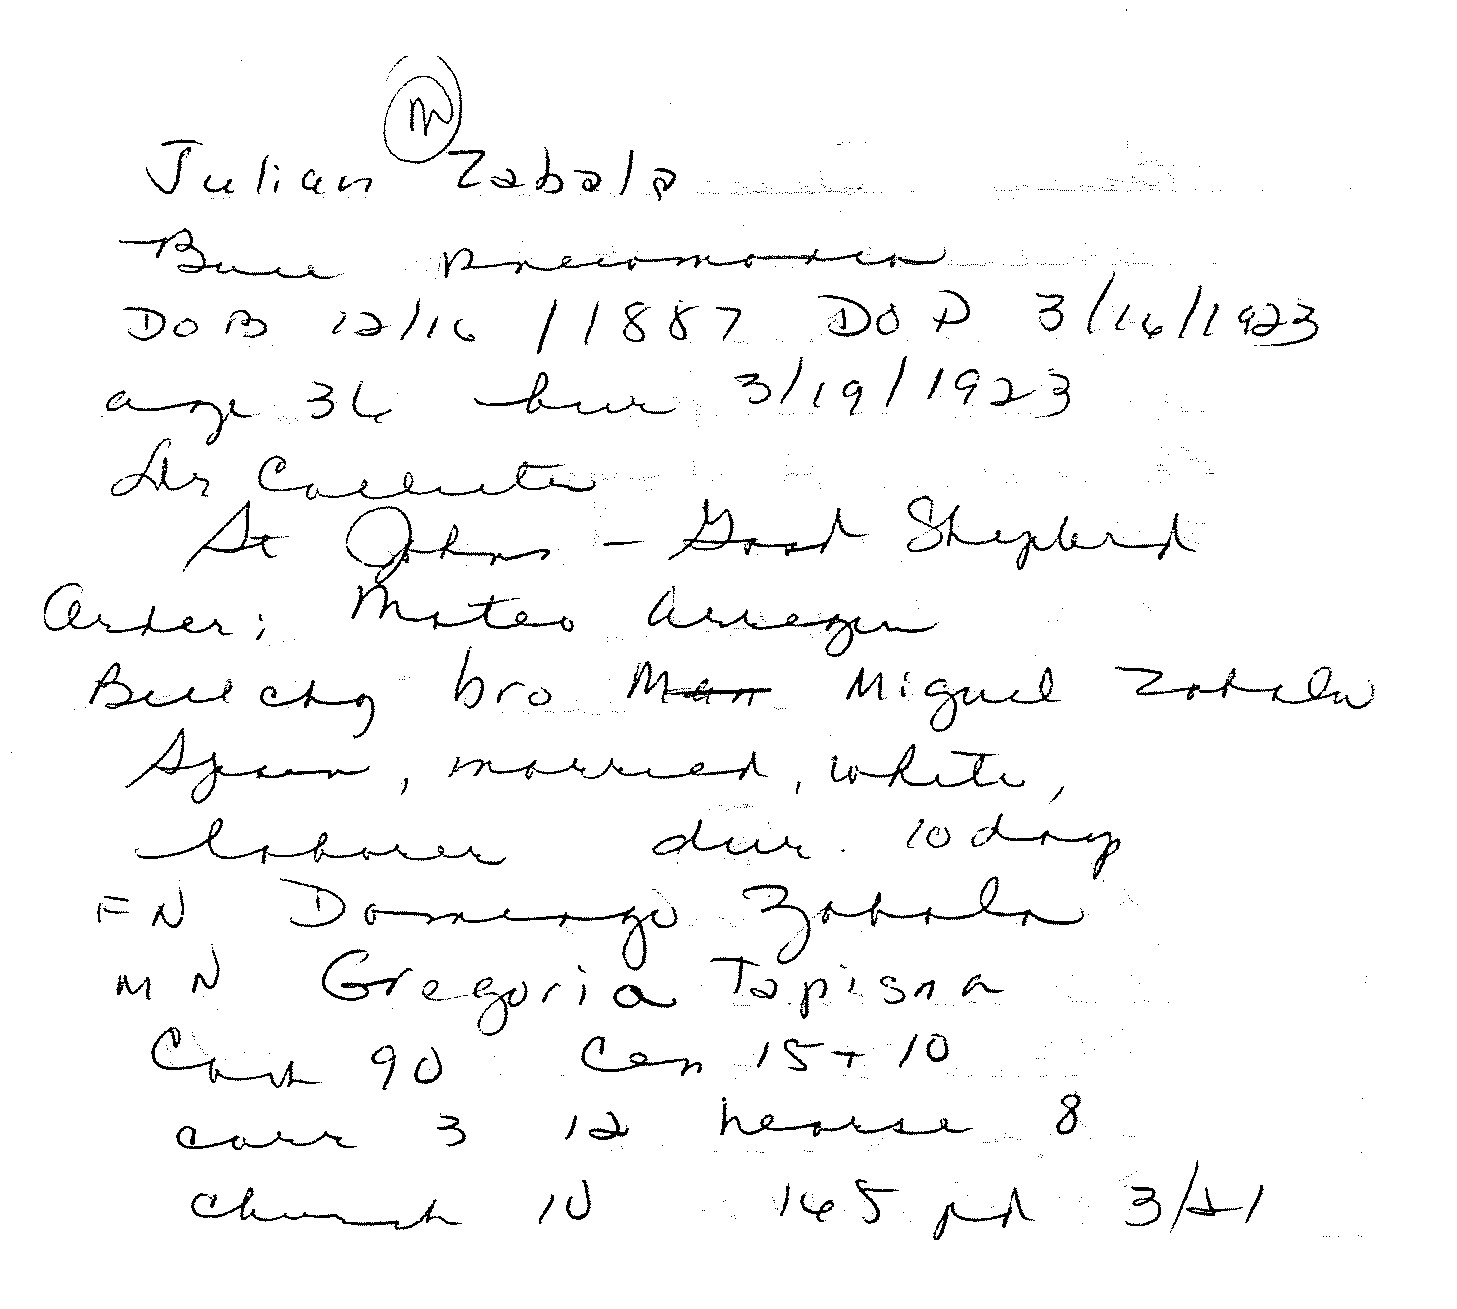 M
Julian Zabala
pneumonia
DOB 12/16/1887 DOD 3/16/1923
age 36 bur 3/19/1923
Dr
St Johns - Good Shepherd
Order: Mateo Arregui
Bill chg bro Man Miguel Zabala
Spain, married, white,
laborer dur. 10 days
FN Domingo Zabala
MN Gregoria Tapisna
Cash 90 Cem 15 + 10
carr 3 12 hearse 8
church 10 145 pd 3/21